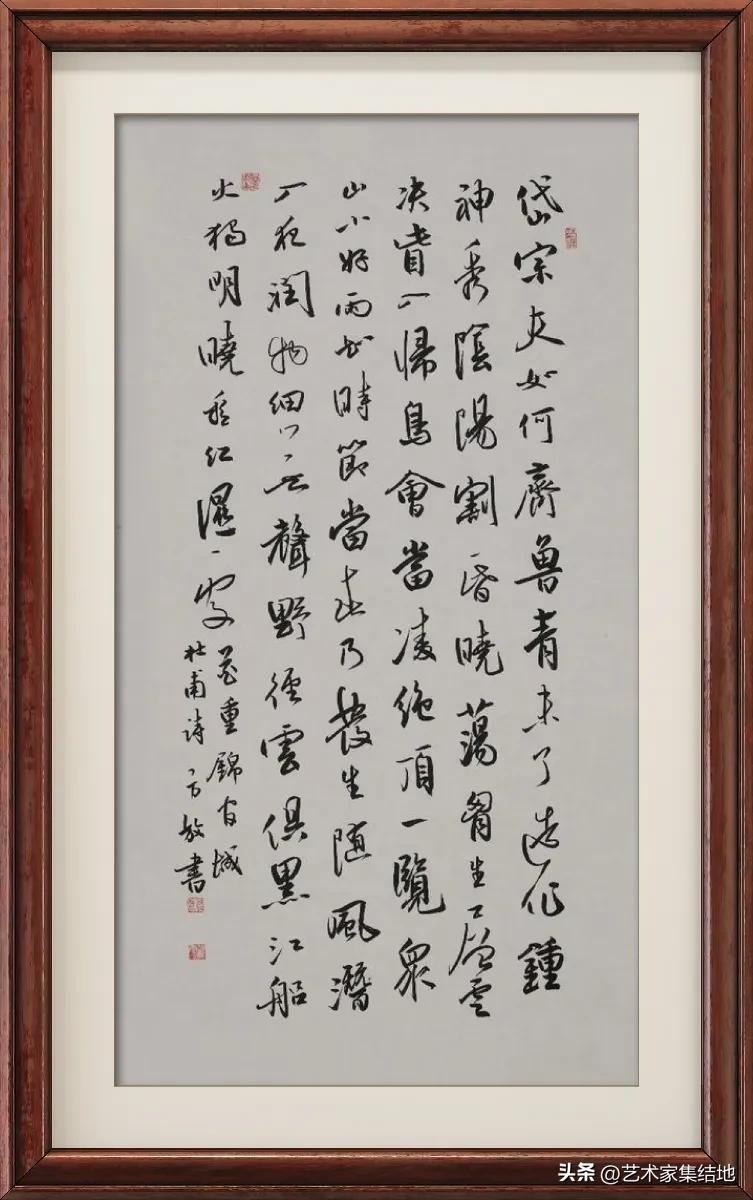 岱宗夫如何齊魯青未了造化鍾
神秀陰陽割昏曉蕩胷生層雲
决眥入歸鳥會當凌絶頂一覽眾
山小好雨知時節當春乃發生随風潛
入夜潤物細無聲野徑雲俱黑江船
火獨明曉看紅濕處
花重錦官城
杜甫詩 書
头条 @艺术家集结地